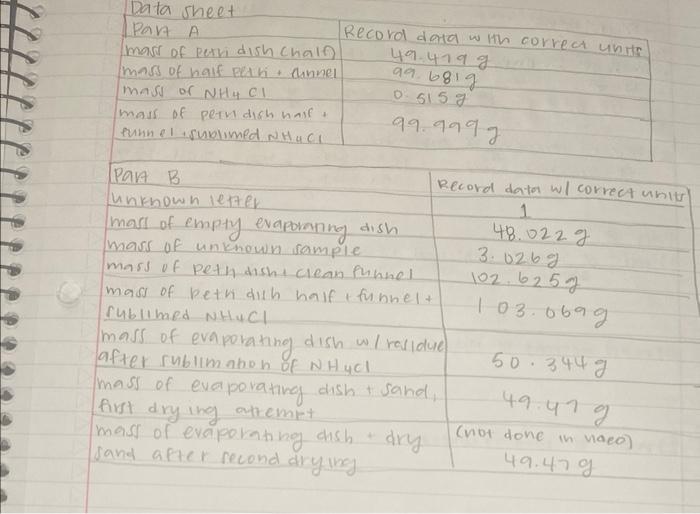 Data sheet
Part A Record data with correct units
mass of petri dish (half) 49.479 g
mass of half petri + funnel 99.681g
mass of NH4Cl 0.515g
mass of petri dish half +
funnel + sublimed NH4Cl 99.999g
Part B Record data w/ correct units
unknown letter 1
mass of empty evaporating dish 48.022g
mass of unknown sample 3.026g
mass of petri dish + clean funnel 102.625g
mass of petri dish half + funnel +
sublimed NH4Cl 103.069g
mass of evaporating dish w/ residue
after sublimation of NH4Cl 50.344g
mass of evaporating dish + sand,
first drying attempt 49.47 g
mass of evaporating dish + dry (not done in video)
sand after second drying 49.47g